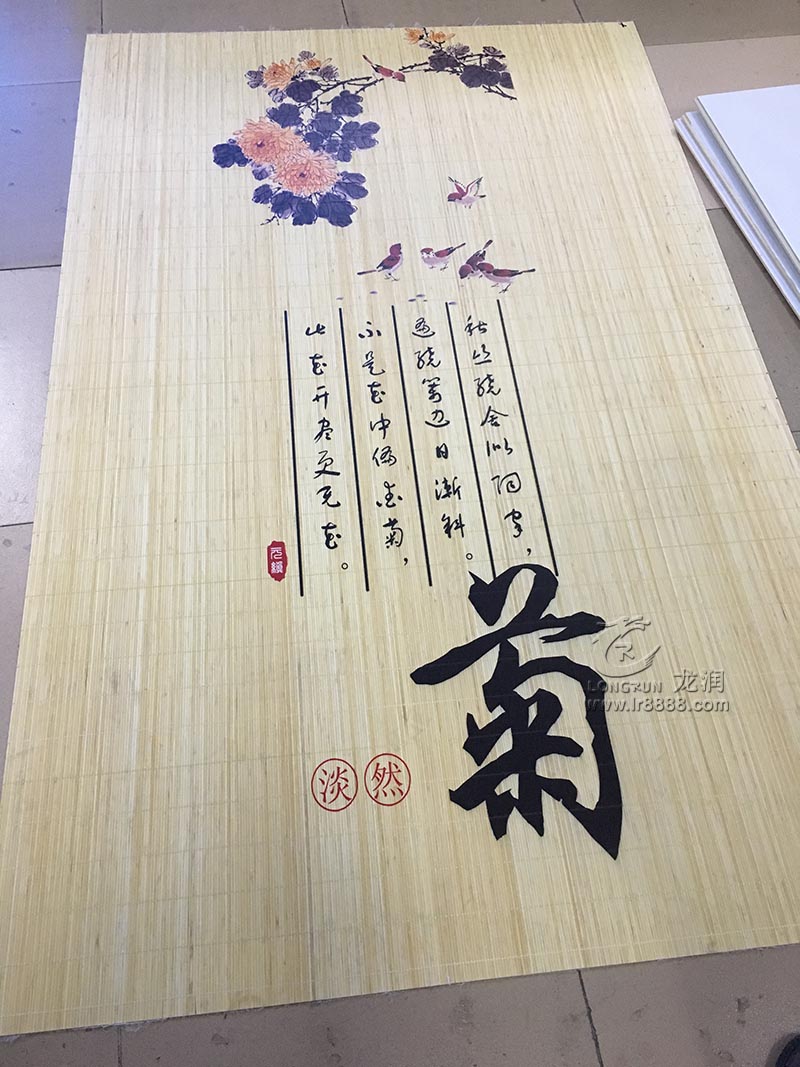 秋丛绕舍似陶家，
遍绕篱边日渐斜。
不是花中偏爱菊，
此花开尽更无花。
元稹
菊
淡然
LONGRUN 龙润
www.lr8888.com